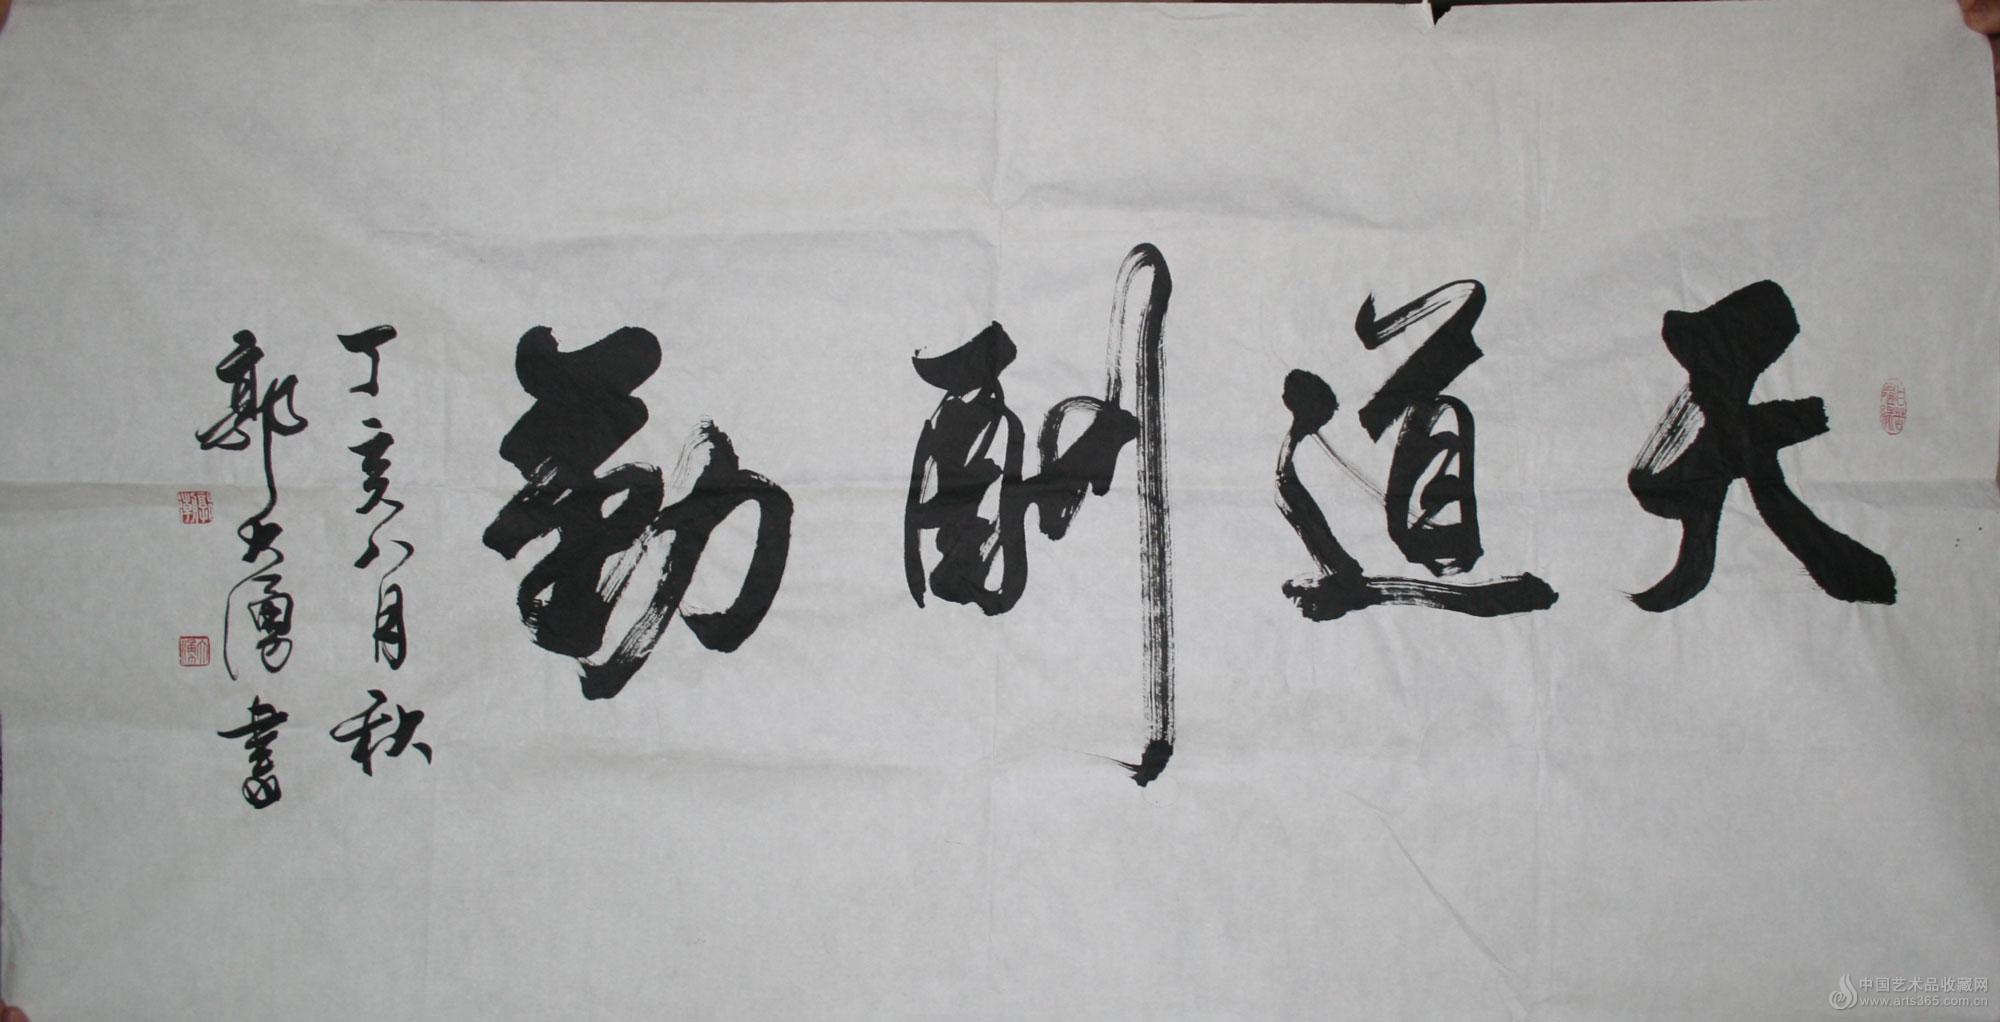 天道酬勤
丁亥八月秋
郭大勇書
中国艺术品收藏网
www.arts365.com.cn